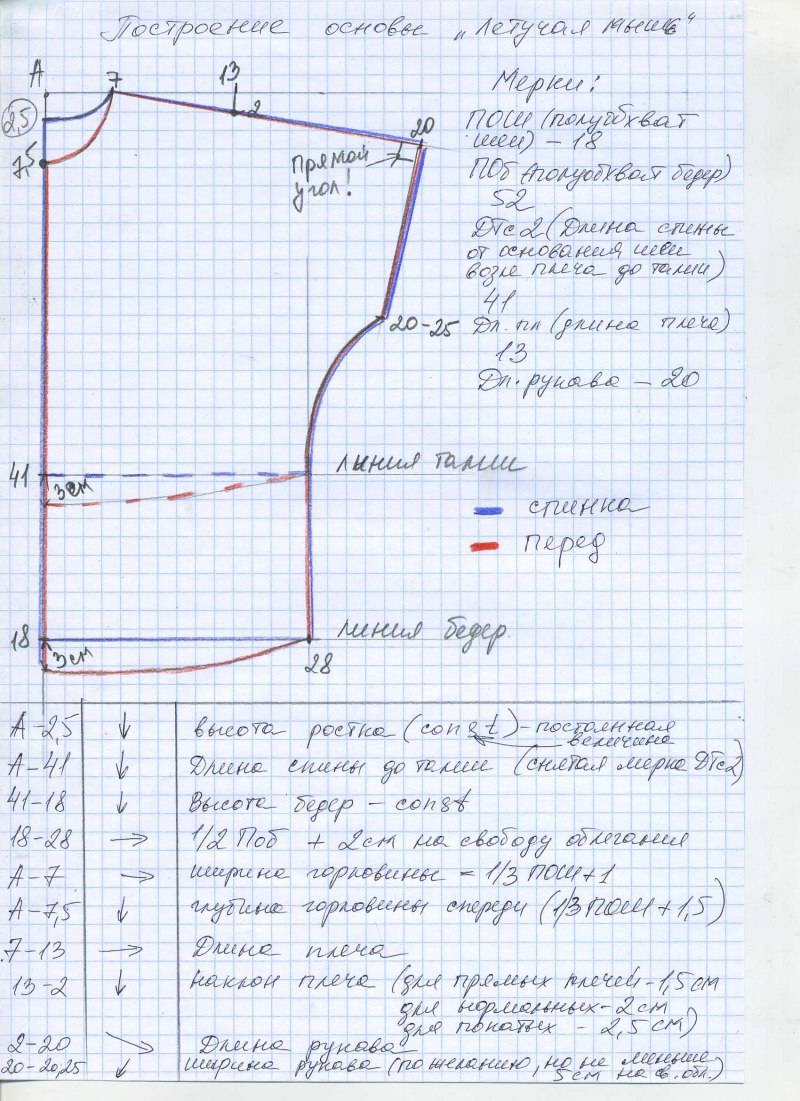 Построение основы „Летучая мышь"
А
7
13
2
20
2,5
7,5
прямой
угол!
20-25
41
3см
линия талии
18
3см
линия бедер.
28
Мерки:
ПОШ (полуобхват
шеи) – 18
ПОб (полуобхват бедер)
52
ДТс2 (Длина спины
от основания шеи
возле плеча до талии)
41
Дл. пл (длина плеча)
13
Дл. рукава – 20
спинка
перед
А-2,5 ↓ высота ростка (const) - постоянная
величина
А-41 ↓ Длина спины до талии (снятая мерка ДТс2)
41-18 ↓ Высота бедер – const
18-28 → 1/2 Поб + 2см на свободу облегания
А-7 → ширина горловины = 1/3 ПОШ+1
А-7,5 ↓ глубина горловины спереди (1/3 ПОШ + 1,5)
7-13 → Длина плеча
13-2 ↓ наклон плеча (для прямых плечей - 1,5 см
для нормальных - 2 см
для покатых - 2,5 см)
2-20 ↘ Длина рукава
20-20,25 ↓ ширина рукава (по желанию, но не меньше
5см на св. обл.)